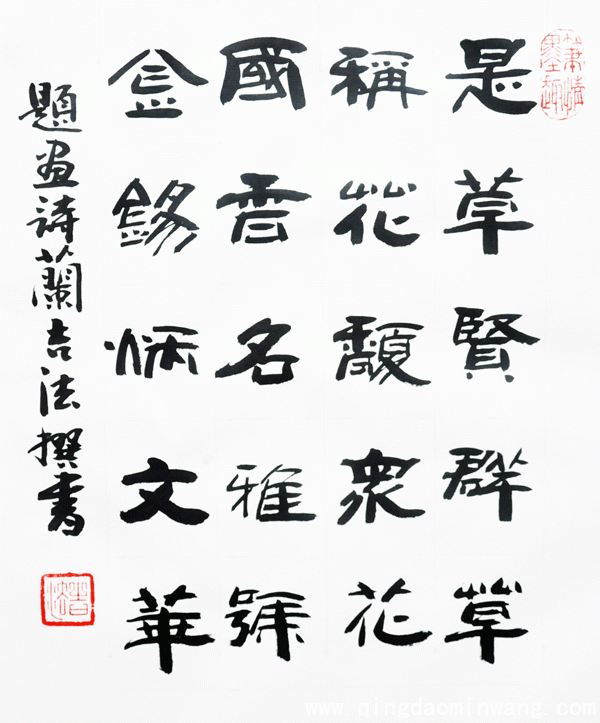 筆情墨趣
是草賢群草
稱花馥衆花
國香名雅號
金錫炳文華
題畫詩蘭吉法撰書
吉法
www.qingdaominwang.com